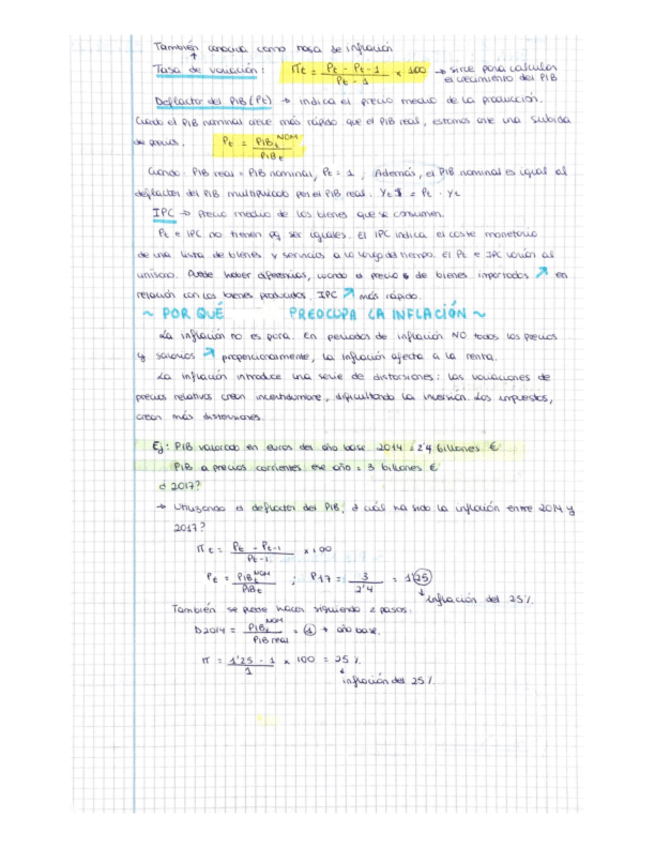 También conocida como tasa de inflación
↑
Tasa de variación: πt = Pt - Pt-1 / Pt-1 x 100 → sirve para calcular
el crecimiento del PIB
Deflactor del PIB (Pt) → indica el precio medio de la producción.
Cuando el PIB nominal crece más rápido que el PIB real, estamos ante una subida
de precios. Pt = PIBt NOM / PIBt
Cuando PIB real = PIB nominal, Pt = 1, Además, el PIB nominal es igual al
deflactor del PIB multiplicado por el PIB real. Yt$ = Pt · Yt
IPC → precio medio de los bienes que se consumen.
Pt e IPC no tienen pq ser iguales. El IPC indica el coste monetario
de una lista de bienes y servicios a lo largo del tiempo. El Pt e IPC varían al
unísono. Puede haber diferencias, cuando el precio de bienes importados ↗ en
relación con los bienes producidos. IPC ↗ más rápido.
~ POR QUÉ PREOCUPA LA INFLACIÓN ~
La inflación no es pura. En periodos de inflación NO todos los precios
y salarios ↗ proporcionalmente, la inflación afecta a la renta.
La inflación introduce una serie de distorsiones: las variaciones de
precios relativos crean incertidumbre, dificultando la inversión. Los impuestos,
crean más distorsiones.
Ej: PIB valorado en euros del año base 2014 = 2'4 billones €
PIB a precios corrientes ese año = 3 billones €
¿ 2017?
→ Utilizando el deflactor del PIB, ¿ cuál ha sido la inflación entre 2014 y
2017?
πt = Pt - Pt-1 / Pt-1 x 100
Pt = PIBt NOM / PIBt ; P17 = 3 / 2'4 = 1'25
↓ inflación del 25%.
También se puede hacer siguiendo 2 pasos:
D2014 = PIBt NOM / PIB real = 1 → año base.
π = 1'25 - 1 / 1 x 100 = 25 %
↓
inflación del 25%.